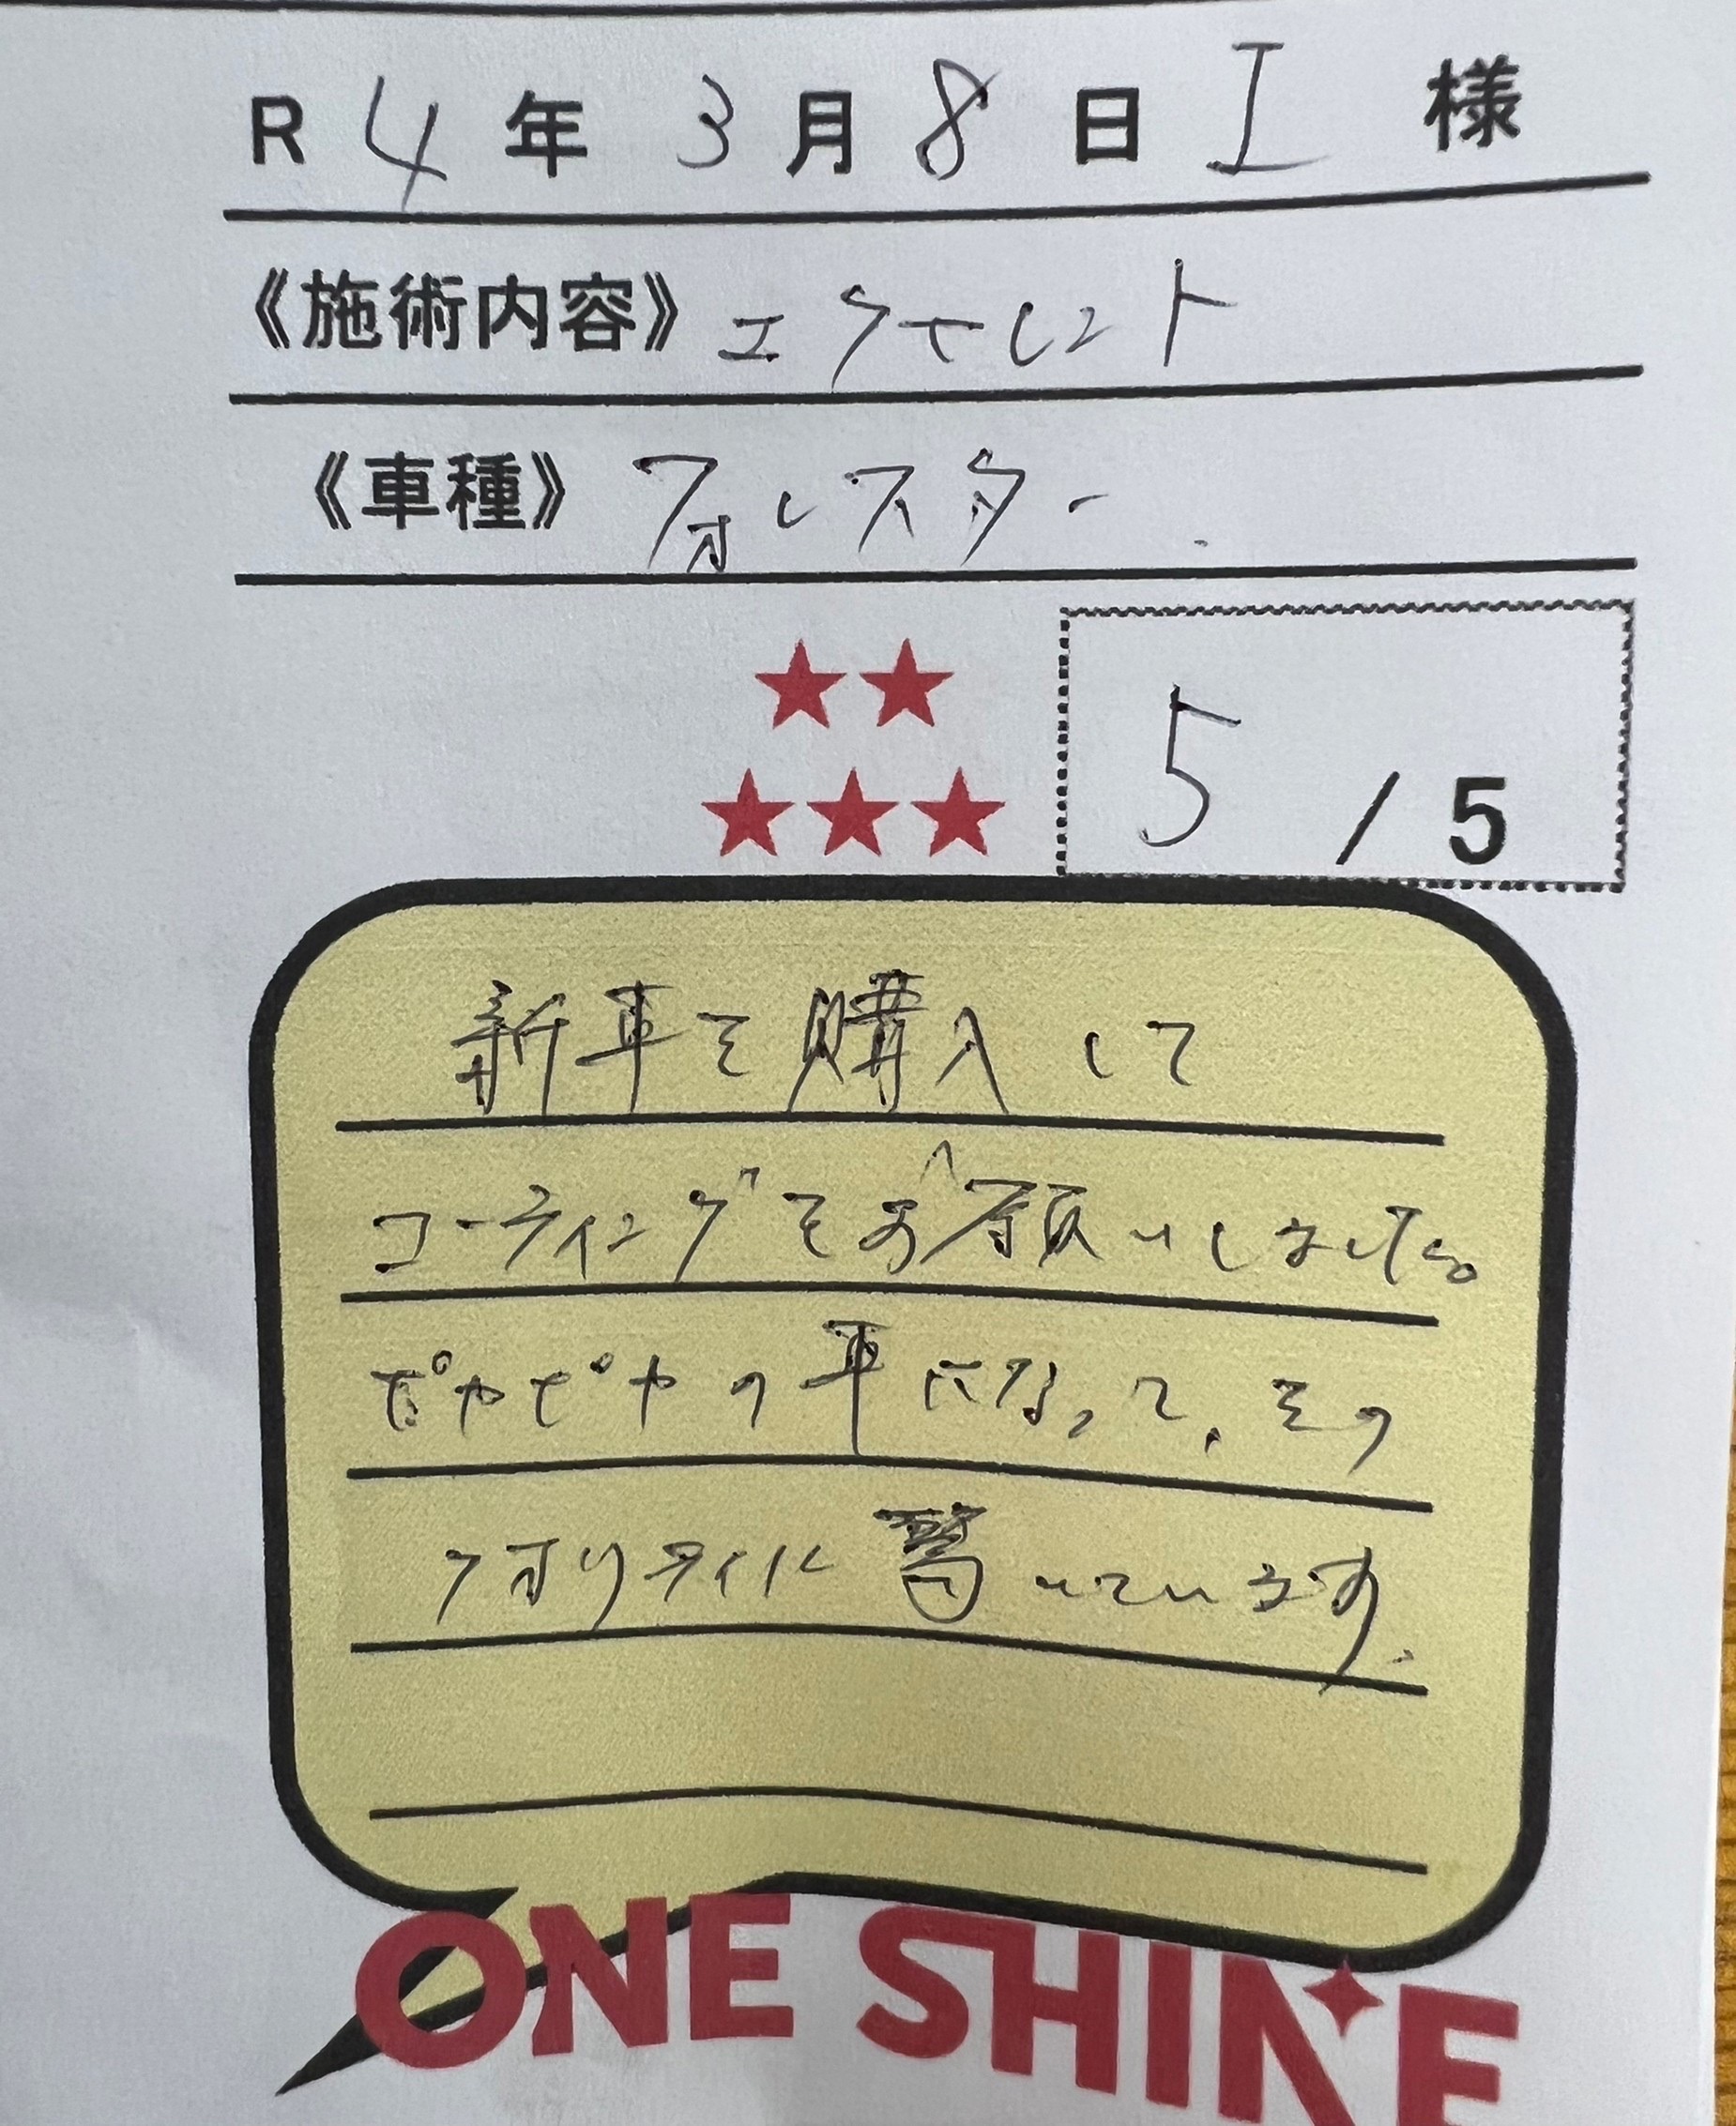 R 4 年 3 月 8 日 I 様
《施術内容》エクセレント
《車種》フォレスター
★★
★★★
5 / 5
新車を購入して
コーティングをお願いしました。
ピカピカの車になって、その
クオリティに驚いています。
ONE SHINE